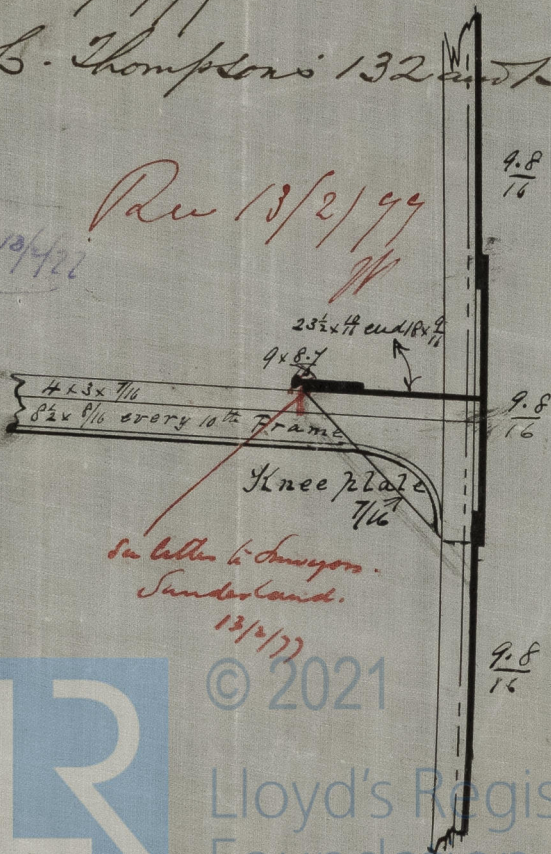 C. Thompson's 132 and
Rec 13/2/77
9.8/16
23½ x 10/16 end 18 x 9/16
9 x 8.7/16
4 x 3 x 7/16
8½ x 8/16 every 10th Frame
9.8/16
Knee plate
7/16
See letter to Surveyors.
Sunderland.
13/2/77
9.8/16
© 2021
Lloyd's Regis